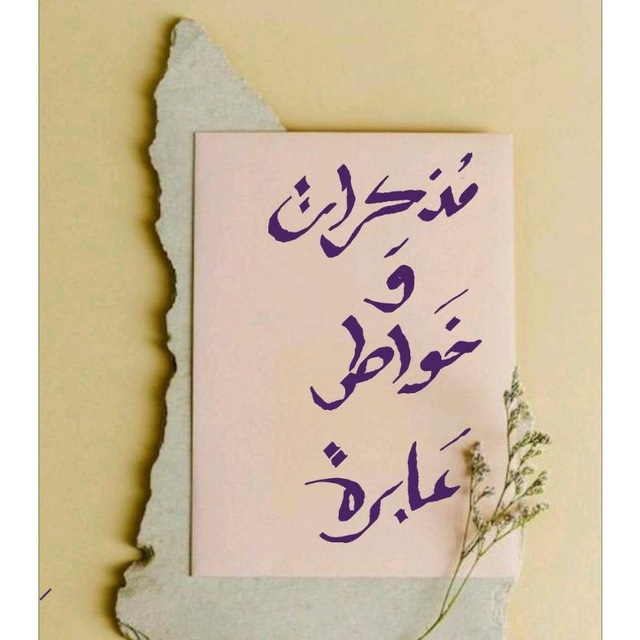 مُذكرات
وَ
خَواطر
عَابرةً